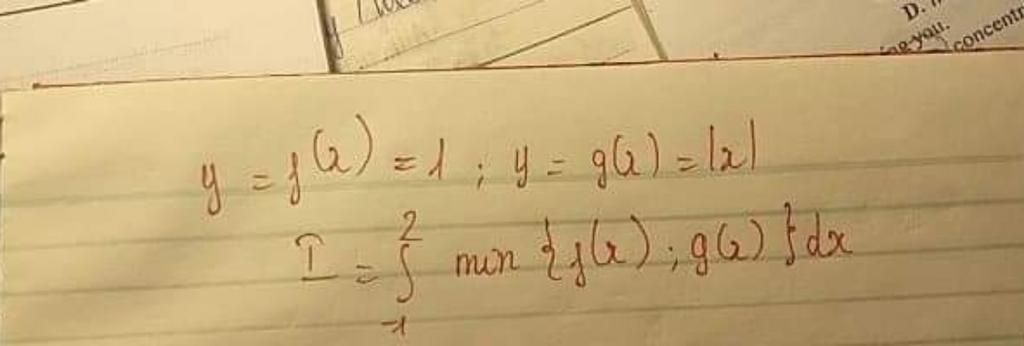 D.
you.
concentr
y = f(x) = 1 ; y = g(x) = |x|
I = ∫₋₁² min {f(x) ; g(x)} dx